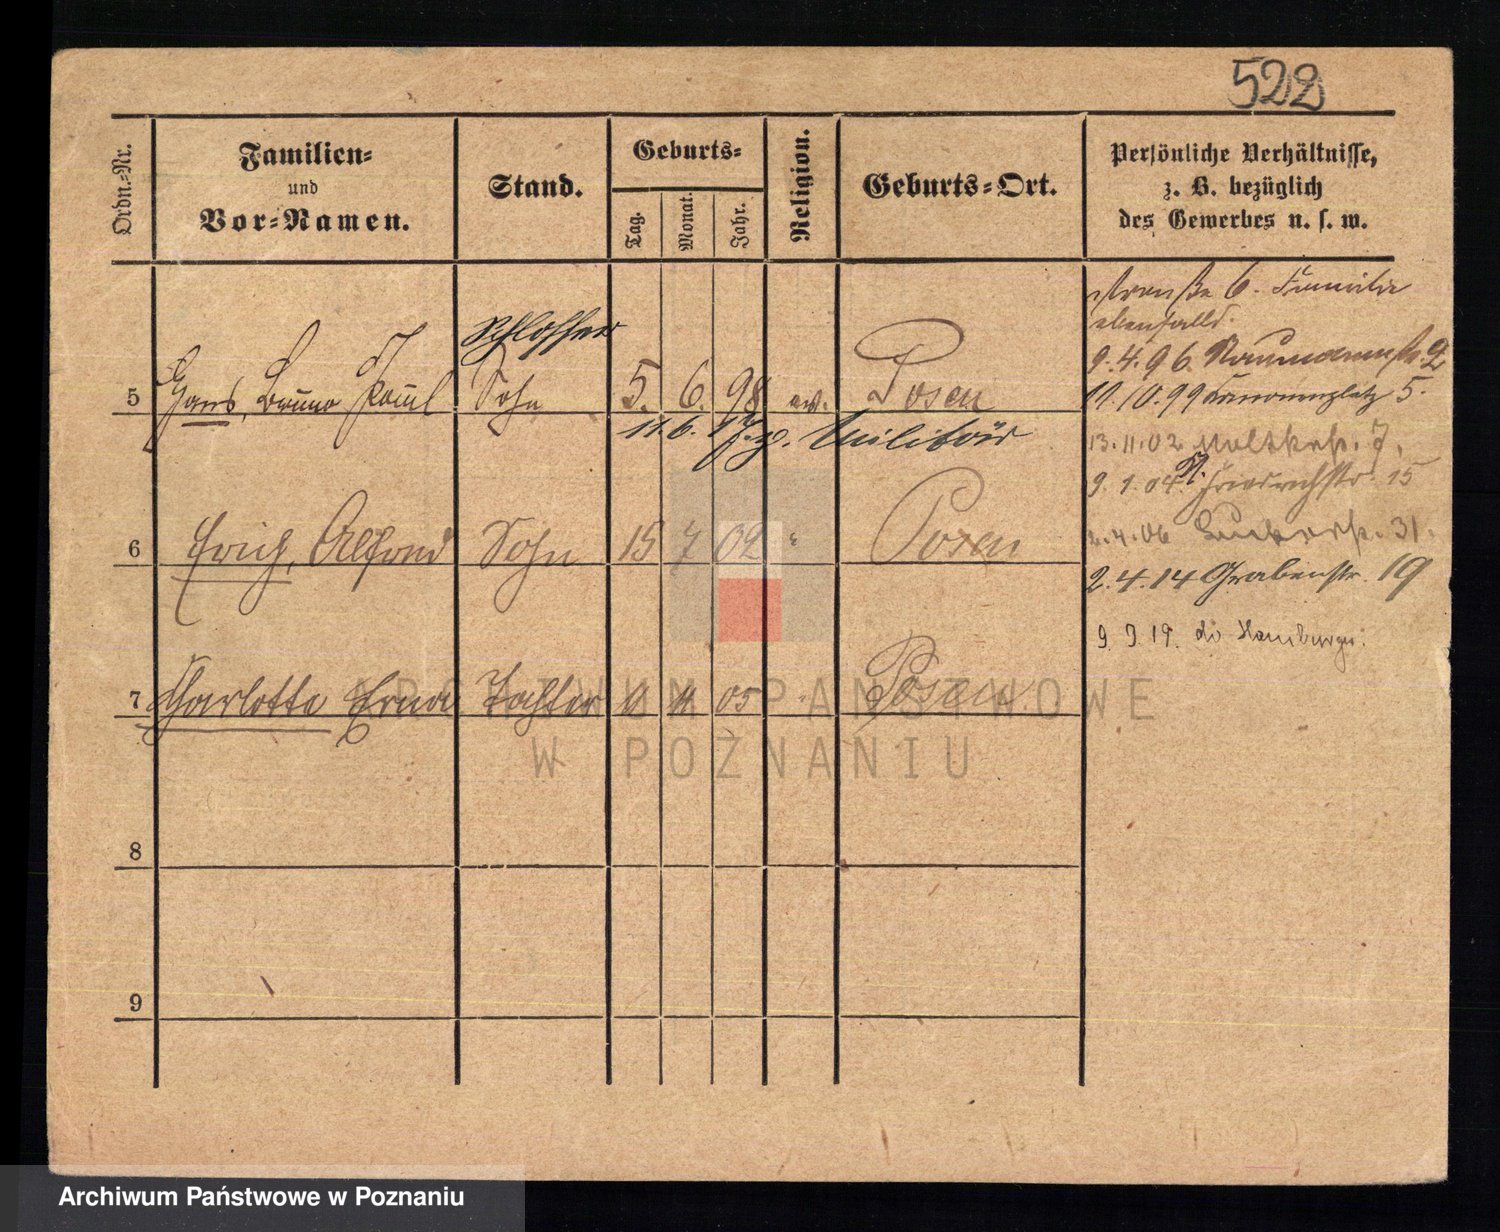 522
Ordn.-Nr.
Familien-
und
Vor-Namen.
Stand.
Geburts-
Tag.
Monat.
Jahr.
Religion.
Geburts-Ort.
Persönliche Verhältnisse,
z. B. bezüglich
des Gewerbes u. s. w.
straße 6. Familie
ebenfalls.
9.4.96. Naumannstr. 2
11.10.99 Kanonenplatz 5.
13.11.02 Moltkestr. 7.
9.1.04. Friedrichstr. 15
2.4.06 31.
2.4.14 Grabenstr. 19
9 9 19.
Schlosser
5 Hans, Bruno Paul Sohn 5. 6. 98 ev. Posen
11.6.17 z. Militär
6 Erich, Alfred Sohn 15 7 02 " Posen
7 Charlotte Erna Tochter 11 11 05 " Posen
8
9
ARCHIWUM PAŃSTWOWE
W POZNANIU
Archiwum Państwowe w Poznaniu